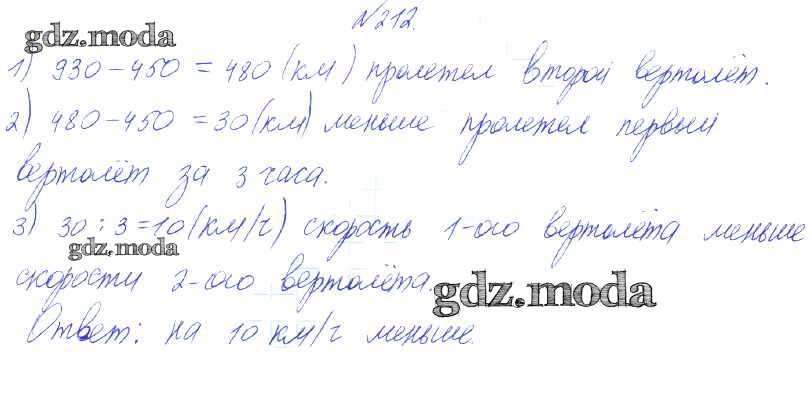 №212.
gdz.moda
1) 930-450=480(км) пролетел второй вертолёт.
2) 480-450=30(км) меньше пролетел первый
вертолёт за 3 часа.
3) 30:3=10(км/ч) скорость 1-ого вертолёта меньше
gdz.moda
скорости 2-ого вертолёта.
gdz.moda
Ответ: на 10 км/ч меньше.